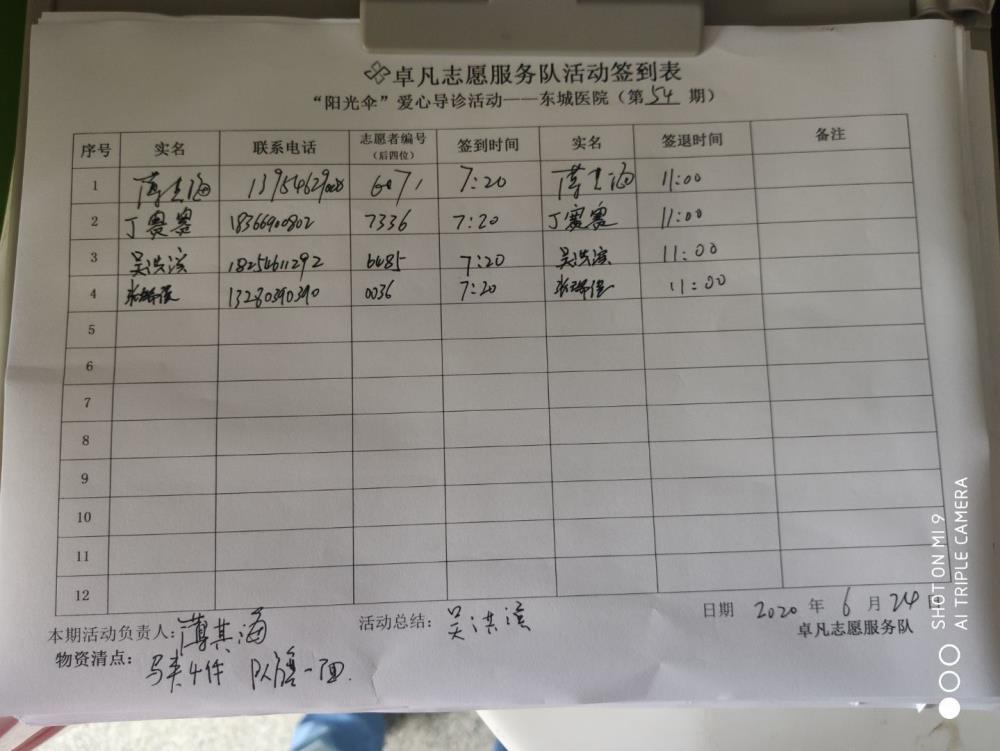 卓凡志愿服务队活动签到表
“阳光伞”爱心导诊活动——东城医院（第 54 期）
序号 实名 联系电话 志愿者编号（后四位） 签到时间 实名 签退时间 备注
1 6071 7:20 11:00
2 丁赛赛 18366900802 7336 7:20 丁赛赛 11:00
3 吴洪滨 18254611292 6485 7:20 吴洪滨 11:00
4 13280390390 0036 7:20 11:00
5
6
7
8
9
10
11
12
本期活动负责人： 薄其海 活动总结： 吴洪滨 日期 2020 年 6 月 24 日
卓凡志愿服务队
物资清点： 马夹4件 队旗一面.
SHOT ON MI 9
AI TRIPLE CAMERA